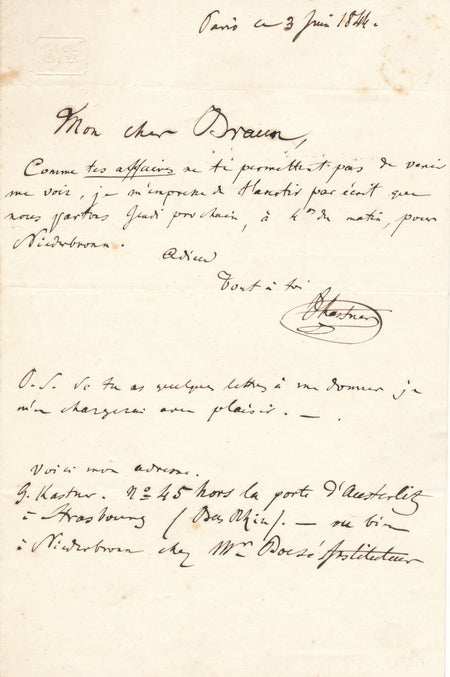 Paris ce 3 Juin 1844.
Mon cher Braun,
Comme tes affaires ne te permettent pas de venir
me voir, je m'empresse de t'avertir par écrit que
nous partons Jeudi prochain, à 4 hrs du matin, pour
Niederbronn.
Adieu
Tout à toi
GKastner
P.S. Si tu as quelques lettres à me donner je
m'en chargerai avec plaisir. —
Voici mon adresse.
G. Kastner. No 45 hors la porte d'Austerlitz
à Strasbourg (Bas Rhin). — ou bien
à Niederbronn chez Mr Instituteur